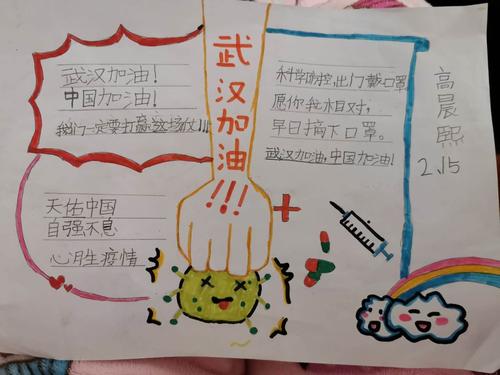 武汉加油!
中国加油!
我们一定要打赢这场仗!!!
武汉加油!!!
科学防控,出门戴口罩
愿你我相对,
早日摘下口罩。
武汉加油,中国加油!
高晨熙
2.15
天佑中国
自强不息
心用生疫情